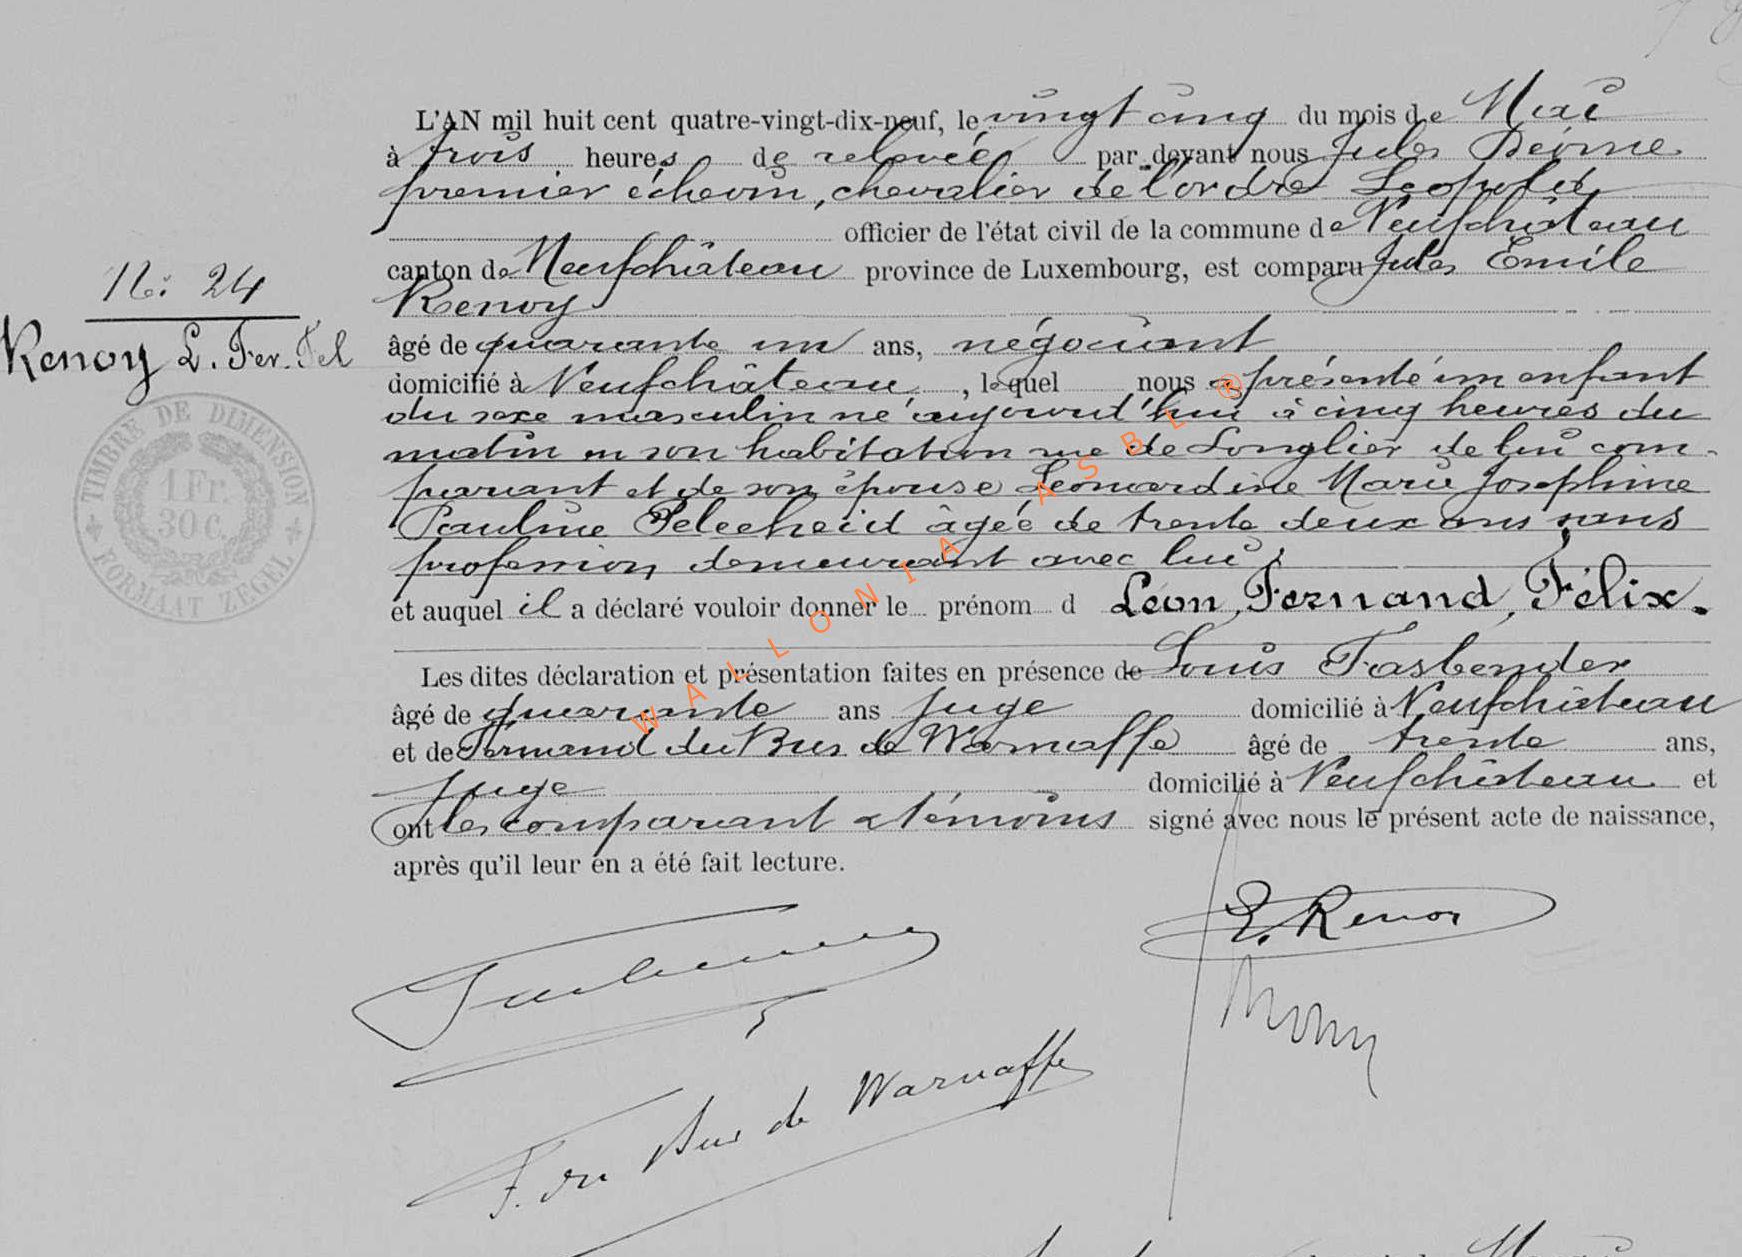 L'AN mil huit cent quatre-vingt-dix-neuf, le vingt cinq du mois de Mai
à trois heures de relevée par devant nous Jules
premier échevin, chevalier de l'ordre Léopold,
officier de l'état civil de la commune de Neufchâteau
canton de Neufchâteau province de Luxembourg, est comparu Jules Emile
Renoy
N: 24
Renoy L. Fer. Fel
âgé de quarante un ans, négociant
domicilié à Neufchâteau, lequel nous a présenté un enfant
du sexe masculin né aujourd'hui à cinq heures du
matin en son habitation rue de Longlier de lui com-
parant et de son épouse Léonardine Marie Joséphine
Pauline âgée de trente deux ans sans
profession, demeurant avec lui
et auquel il a déclaré vouloir donner le prénom d Léon, Fernand, Félix.
Les dites déclaration et présentation faites en présence de Louis Fasbender
âgé de quarante ans Juge domicilié à Neufchâteau
et de Fernand du Bus de Warnaffe âgé de trente ans,
Juge domicilié à Neufchâteau et
ont les comparant & témoins signé avec nous le présent acte de naissance,
après qu'il leur en a été fait lecture.
TIMBRE DE DIMENSION
1 Fr.
30 c.
FORMAAT ZEGEL
WALLONIA ASBL ®
E. Renoy
F. du Bus de Warnaffe